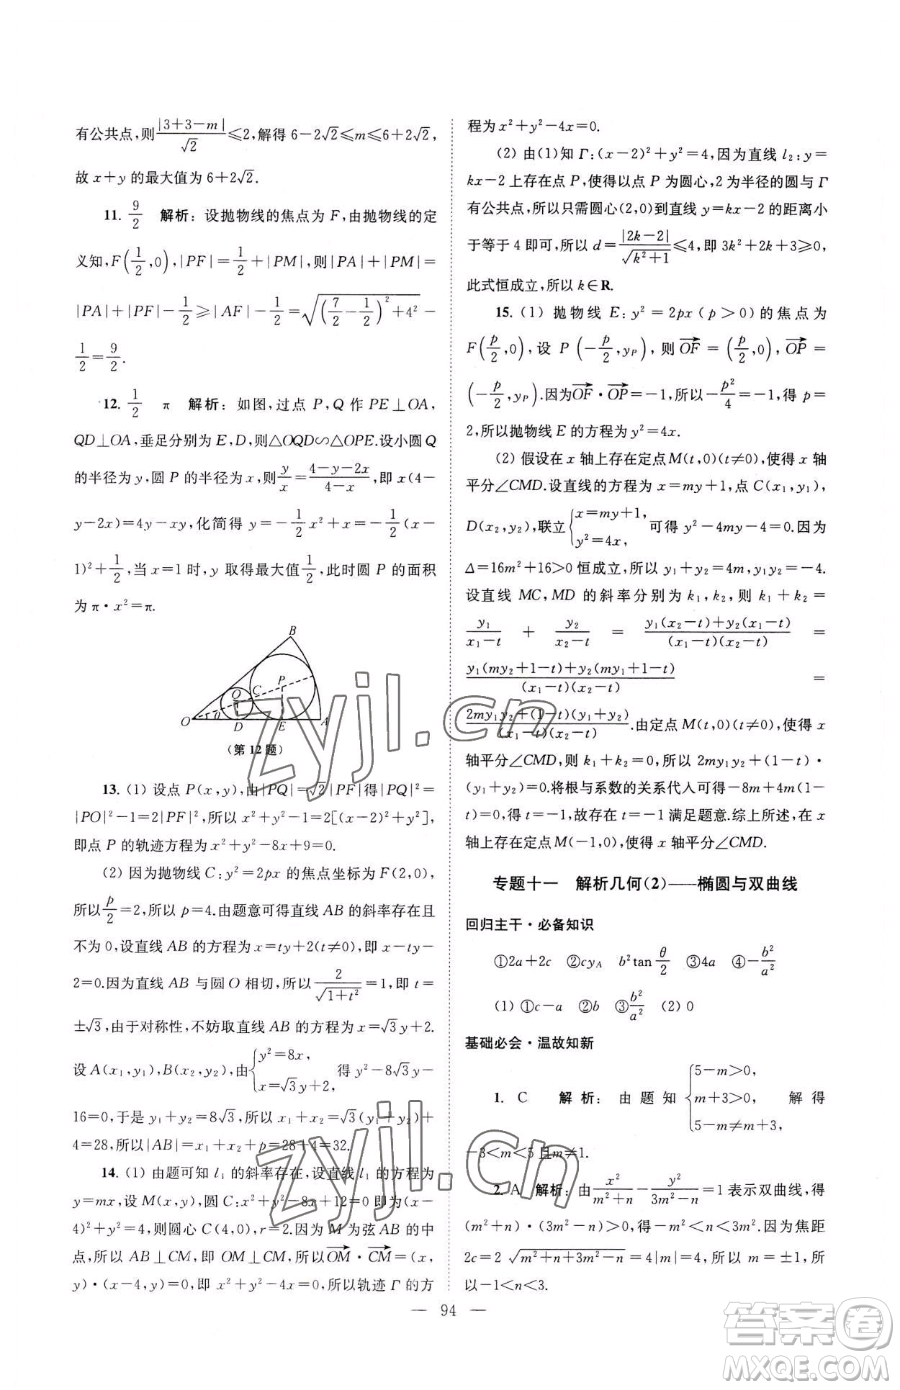 有公共点,则|3+3-m|/√2≤2,解得 6-2√2≤m≤6+2√2,
故 x+y 的最大值为 6+2√2.
11. 9/2 解析:设抛物线的焦点为 F,由抛物线的定
义知,F(1/2,0),|PF|=1/2+|PM|,则|PA|+|PM|=
|PA|+|PF|-1/2≥|AF|-1/2=√((7/2-1/2)²+4²)-
1/2=9/2.
12. 1/2 π 解析:如图,过点 P,Q 作 PE⊥OA,
QD⊥OA,垂足分别为 E,D,则△OQD∽△OPE.设小圆 Q
的半径为 y,圆 P 的半径为 x,则y/x=(4-y-2x)/(4-x),即 x(4-
y-2x)=4y-xy,化简得 y=-1/2x²+x=-1/2(x-
1)²+1/2,当 x=1 时,y 取得最大值1/2,此时圆 P 的面积
为 π·x²=π.
B
P
Q
C
O
θ
D
E
A
(第 12 题)
13. (1) 设点 P(x,y),由|PQ|=√2|PF|得|PQ|²=
|PO|²-1=2|PF|²,所以 x²+y²-1=2[(x-2)²+y²],
即点 P 的轨迹方程为 x²+y²-8x+9=0.
(2) 因为抛物线 y²=2px 的焦点坐标为 F(2,0),
所以p/2=2,所以 p=4.由题意可得直线 AB 的斜率存在且
不为 0,设直线 AB 的方程为 x=ty+2(t≠0),即 x-ty-
2=0.因为直线 AB 与圆 O 相切,所以2/√(1+t²)=1,即 t=
±√3,由于对称性,不妨取直线 AB 的方程为 x=√3y+2.
设 A(x₁,y₁),B(x₂,y₂),由{y²=8x, x=√3y+2 得 y²-8√3y-
16=0,于是 y₁+y₂=8√3,所以 x₁+x₂=√3(y₁+y₂)+
4=28,所以|AB|=x₁+x₂+p=28+4=32.
14. (1) 由题可知 l₁的斜率存在,设直线 l₁的方程为
y=mx,设 M(x,y),圆 C:x²+y²-8x+12=0,即(x-
4)²+y²=4,则圆心 C(4,0),r=2.因为 M 为弦 AB 的中
点,所以 AB⊥CM,即 OM⊥CM,所以OM·CM=(x,
y)·(x-4,y)=0,即 x²+y²-4x=0.所以轨迹 Γ 的方
程为 x²+y²-4x=0.
(2) 由(1)知 Γ:(x-2)²+y²=4,因为直线 l₂:y=
kx-2 上存在点 P,使得以点 P 为圆心,2 为半径的圆与 Γ
有公共点,所以只需圆心(2,0)到直线 y=kx-2 的距离小
于等于 4 即可,所以 d=|2k-2|/√(k²+1)≤4,即 3k²+2k+3≥0,
此式恒成立,所以 k∈R.
15. (1) 抛物线 E:y²=2px(p>0)的焦点为
F(p/2,0),设 P(-p/2,y_P),则OF=(p/2,0),OP=
(-p/2,y_P).因为OF·OP=-1,所以-p²/4=-1,得 p=
2,所以抛物线 E 的方程为 y²=4x.
(2) 假设在 x 轴上存在定点 M(t,0)(t≠0),使得 x 轴
平分∠CMD.设直线的方程为 x=my+1,点 C(x₁,y₁),
D(x₂,y₂),联立{x=my+1, y²=4x, 可得 y²-4my-4=0.因为
Δ=16m²+16>0 恒成立,所以 y₁+y₂=4m,y₁y₂=-4.
设直线 MC,MD 的斜率分别为 k₁,k₂,则 k₁+k₂=
y₁/(x₁-t) + y₂/(x₂-t) = (y₁(x₂-t)+y₂(x₁-t))/((x₁-t)(x₂-t)) =
(y₁(my₂+1-t)+y₂(my₁+1-t))/((x₁-t)(x₂-t)) =
(2my₁y₂+(1-t)(y₁+y₂))/((x₁-t)(x₂-t)).由定点 M(t,0)(t≠0),使得 x
轴平分∠CMD,则 k₁+k₂=0,所以 2my₁y₂+(1-t)·
(y₁+y₂)=0.将根与系数的关系代人可得-8m+4m(1-
t)=0,即 t=-1,故存在 t=-1 满足题意.综上所述,在 x
轴上存在定点 M(-1,0),使得 x 轴平分∠CMD.
专题十一 解析几何(2)——椭圆与双曲线
回归主干·必备知识
①2a+2c ②cy_A b²tanθ/2 ③4a ④-b²/a²
(1) ①c-a ②b ③b²/a² (2) 0
基础必会·温故知新
1. C 解析:由题知{5-m>0, m+3>0, 5-m≠m+3, 解得
-3<m<5 且 m≠1.
2. A 解析:由x²/(m²+n)-y²/(3m²-n)=1 表示双曲线,得
(m²+n)·(3m²-n)>0,得-m²<n<3m².因为焦距
2c=2√(m²+n+3m²-n)=4|m|=4,所以 m=±1,所以
-1<n<3.
— 94 —
zyjl.cn
zyjl.cn
答案圈
MXQE.COM